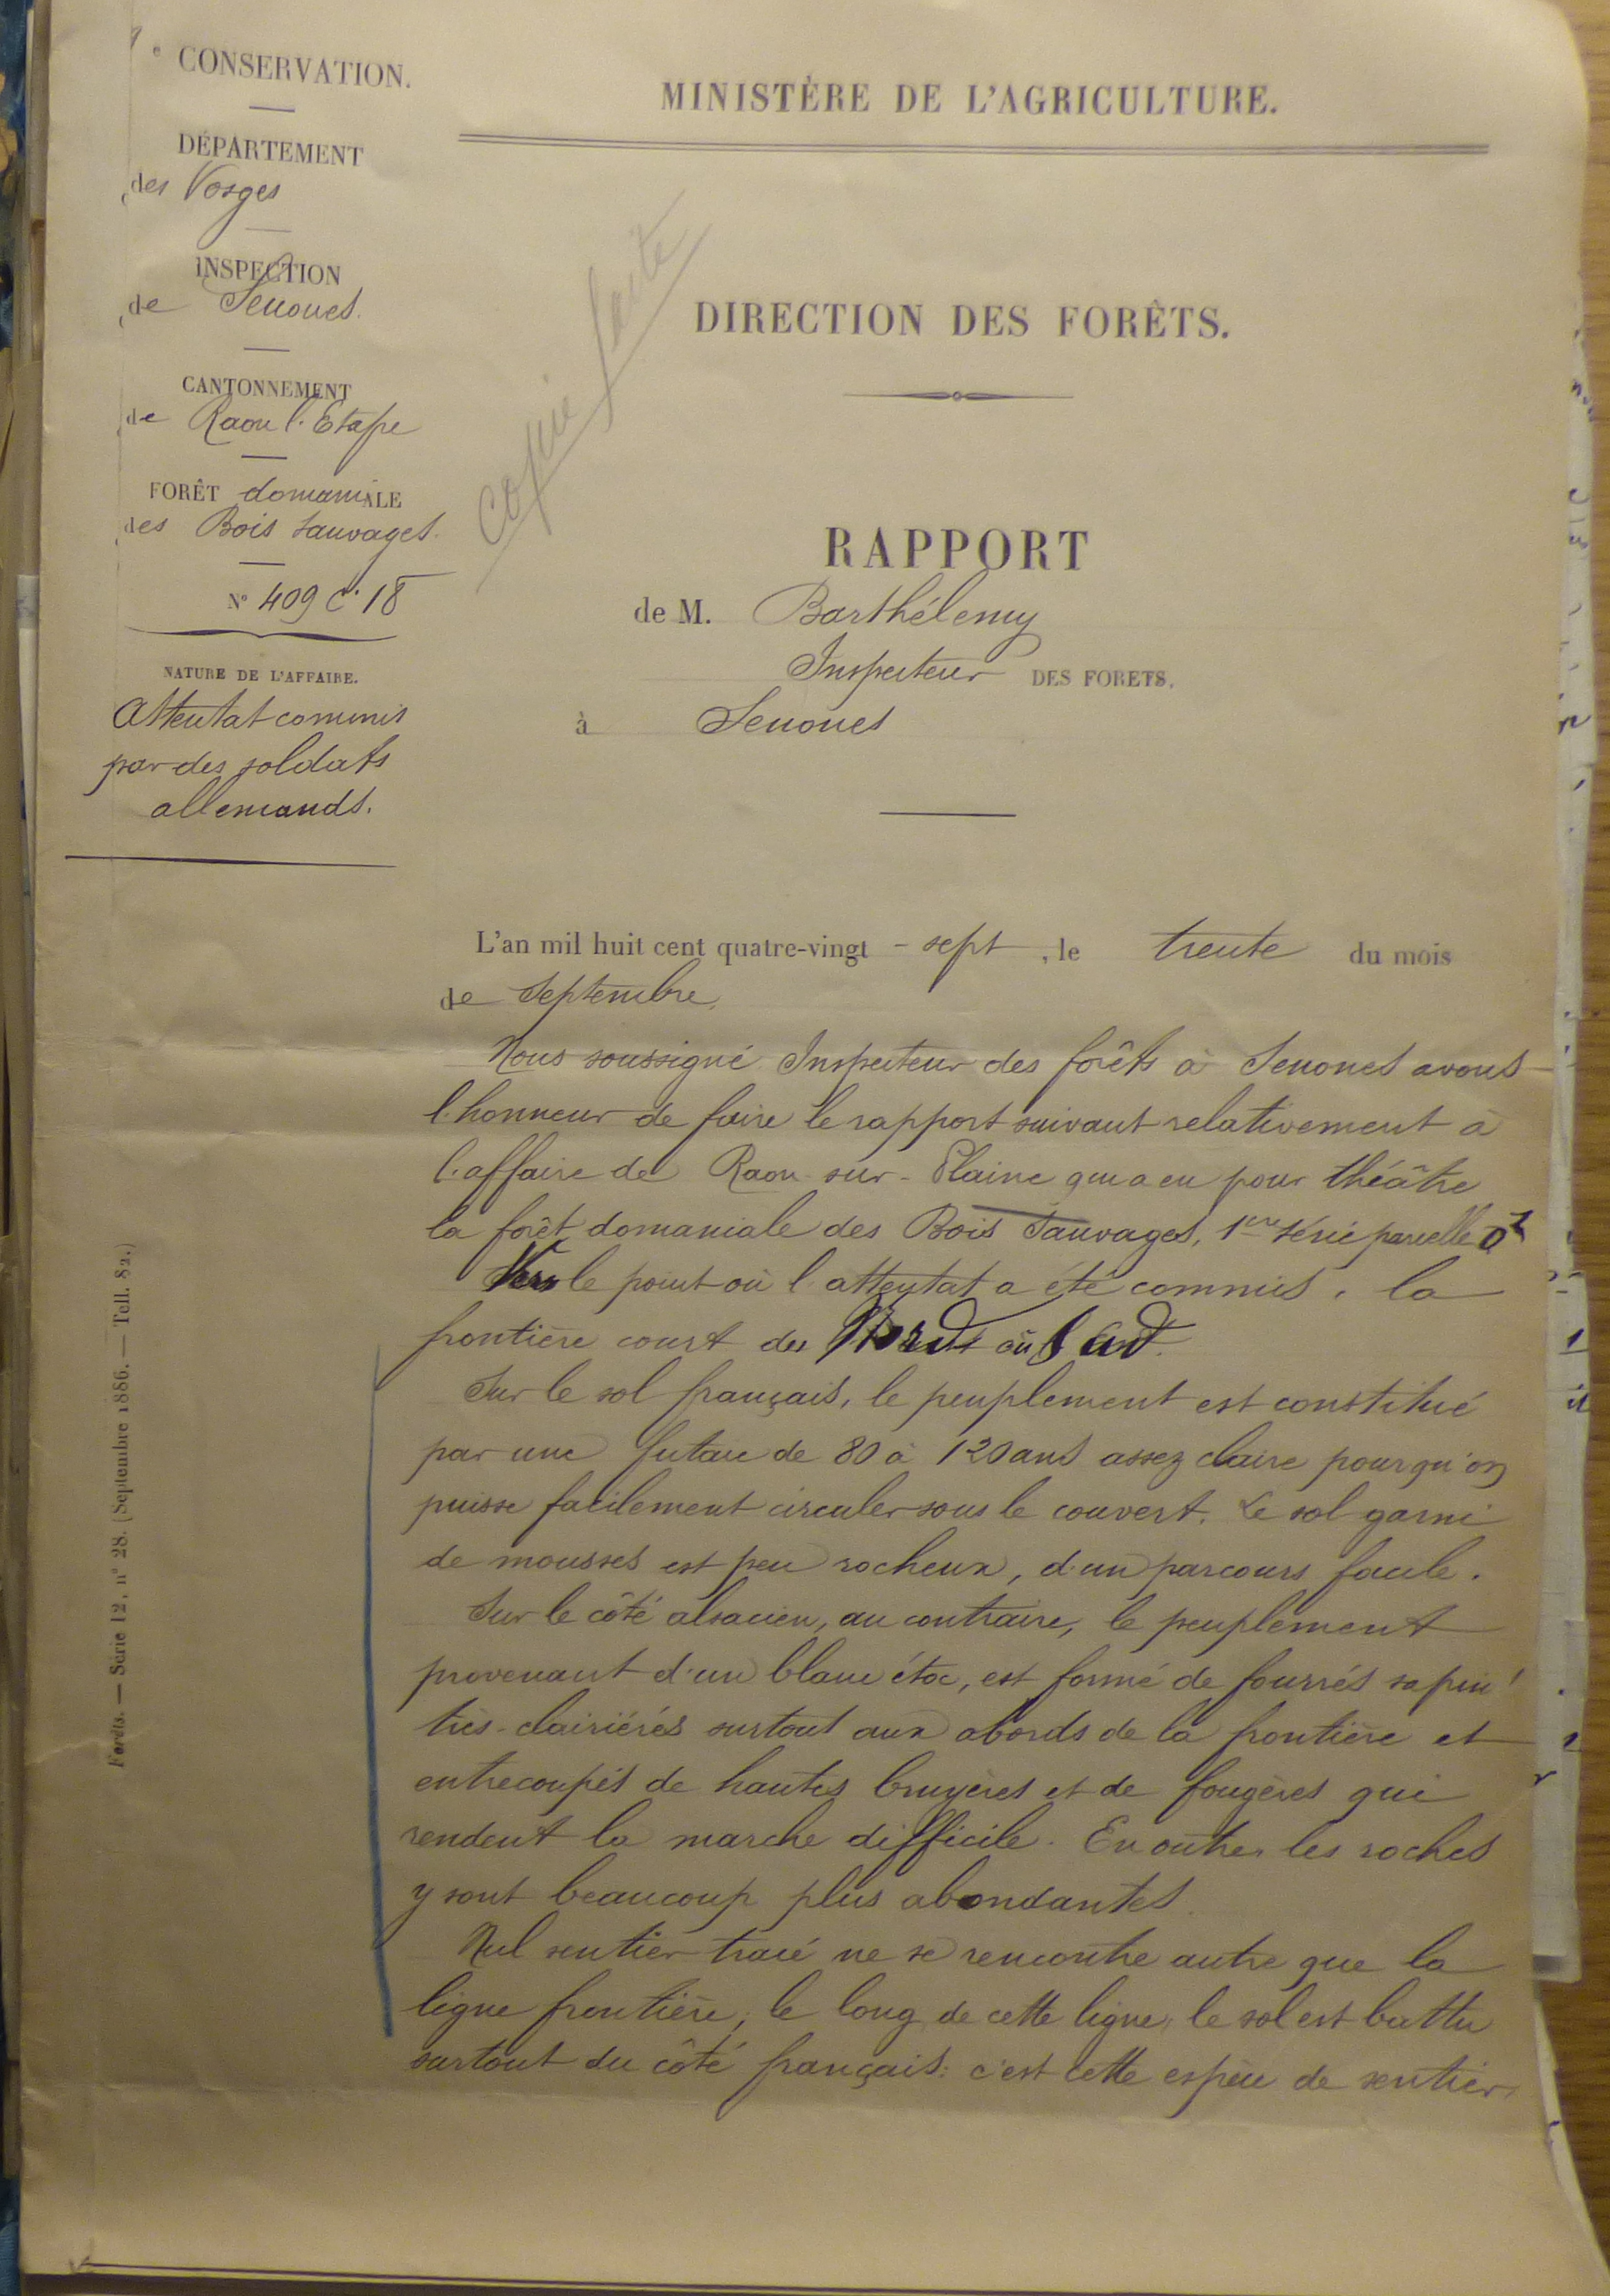 9e CONSERVATION.
DÉPARTEMENT
des Vosges
INSPECTION
de Senones.
CANTONNEMENT
de Raon l'Etape
FORÊT domaniALE
des Bois sauvages.
N° 409 C. 18
NATURE DE L'AFFAIRE.
Attentat commis
par des soldats
allemands.
MINISTÈRE DE L'AGRICULTURE.
DIRECTION DES FORÊTS.
copie faite
RAPPORT
de M. Barthélemy
Inspecteur DES FORETS,
à Senones
L'an mil huit cent quatre-vingt - sept, le trente du mois
de Septembre,
Nous soussigné Inspecteur des forêts à Senones avons
l'honneur de faire le rapport suivant relativement à
l'affaire de Raon-sur-Plaine qui a eu pour théâtre
la forêt domaniale des Bois Sauvages, 1ère Série parcelle
Vers le point où l'attentat a été commis, la
frontière court du Nord au Sud.
Sur le sol français, le peuplement est constitué
par une futaie de 80 à 120 ans assez claire pour qu'on
puisse facilement circuler sous le couvert. Le sol garni
de mousses est peu rocheux, d'un parcours facile.
Sur le côté alsacien, au contraire, le peuplement
provenant d'un blanc étoc, est formé de fourrés sapin
très-clairiérés surtout aux abords de la frontière et
entrecoupés de hautes bruyères et de fougères qui
rendent la marche difficile. En outre, les roches
y sont beaucoup plus abondantes.
Nul sentier tracé ne se rencontre autre que la
ligne frontière; le long de cette ligne, le sol est battu
surtout du côté français: c'est cette espèce de sentier,
Forêts. — Série 12, n° 28. (Septembre 1886. — Tell. 82.)